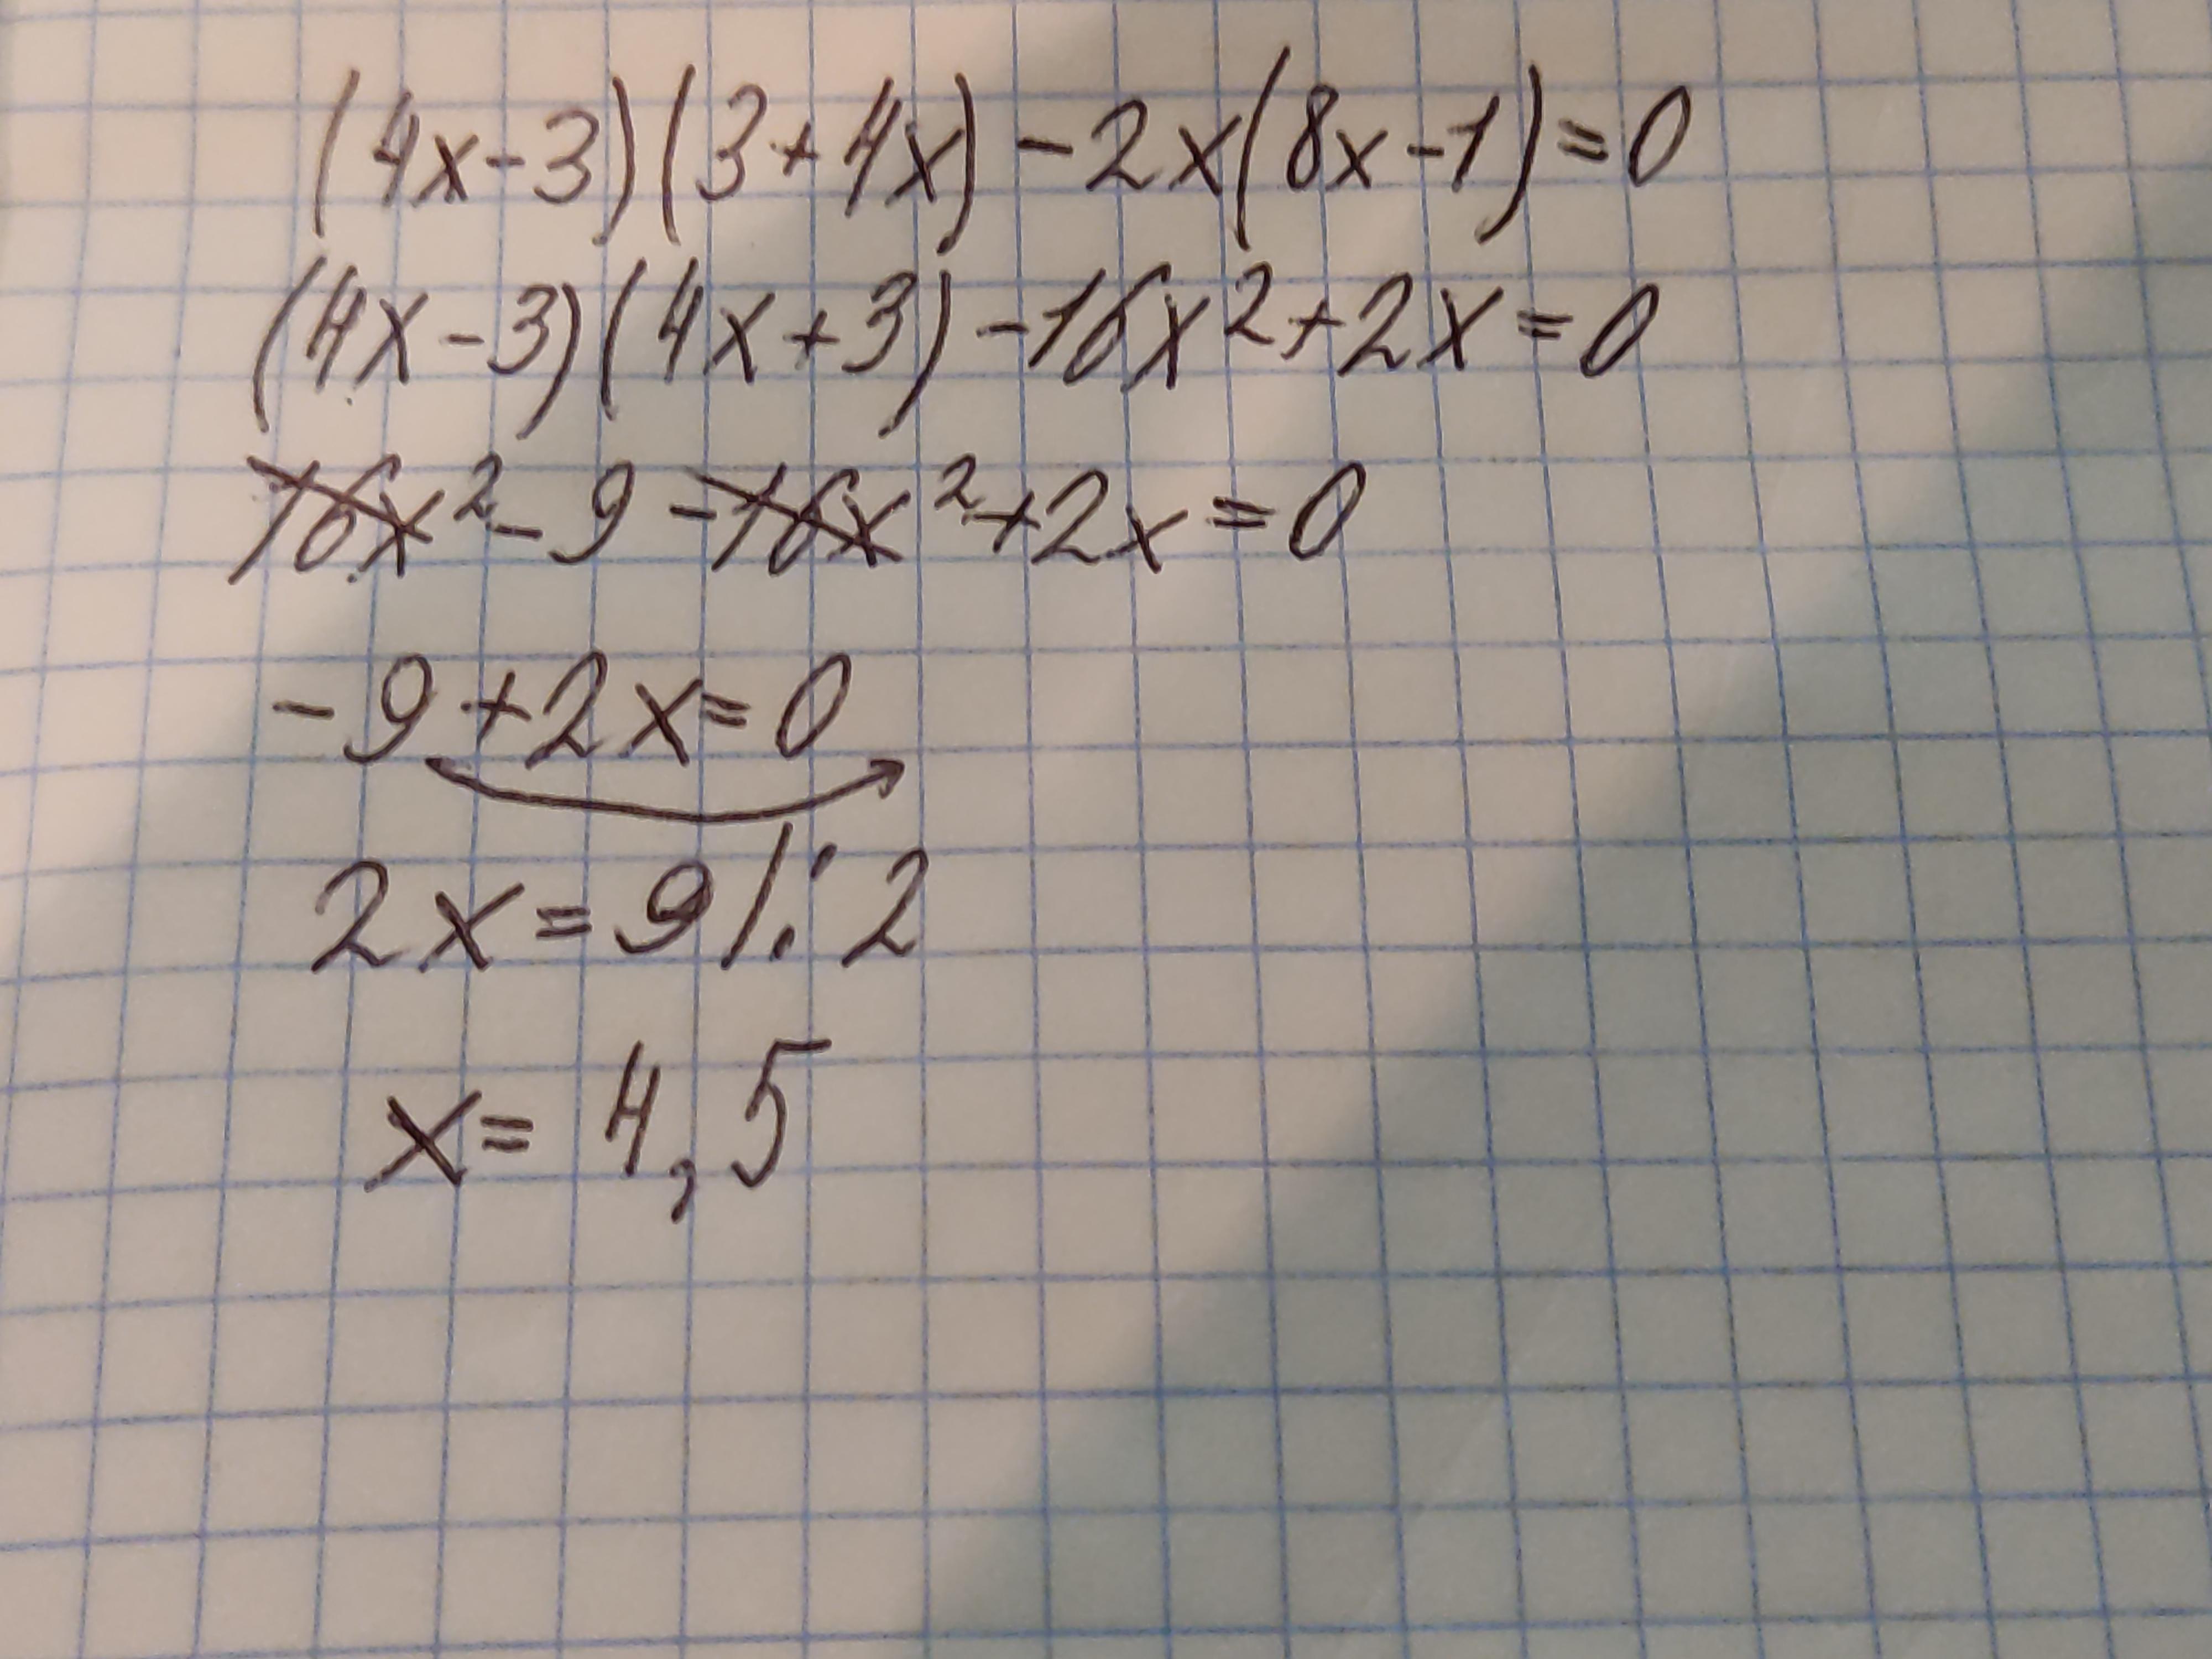 (4x-3)(3+4x)-2x(8x-1)=0
(4x-3)(4x+3)-16x²+2x=0
16x²-9-16x²+2x=0
-9+2x=0
2x=9/:2
x=4,5